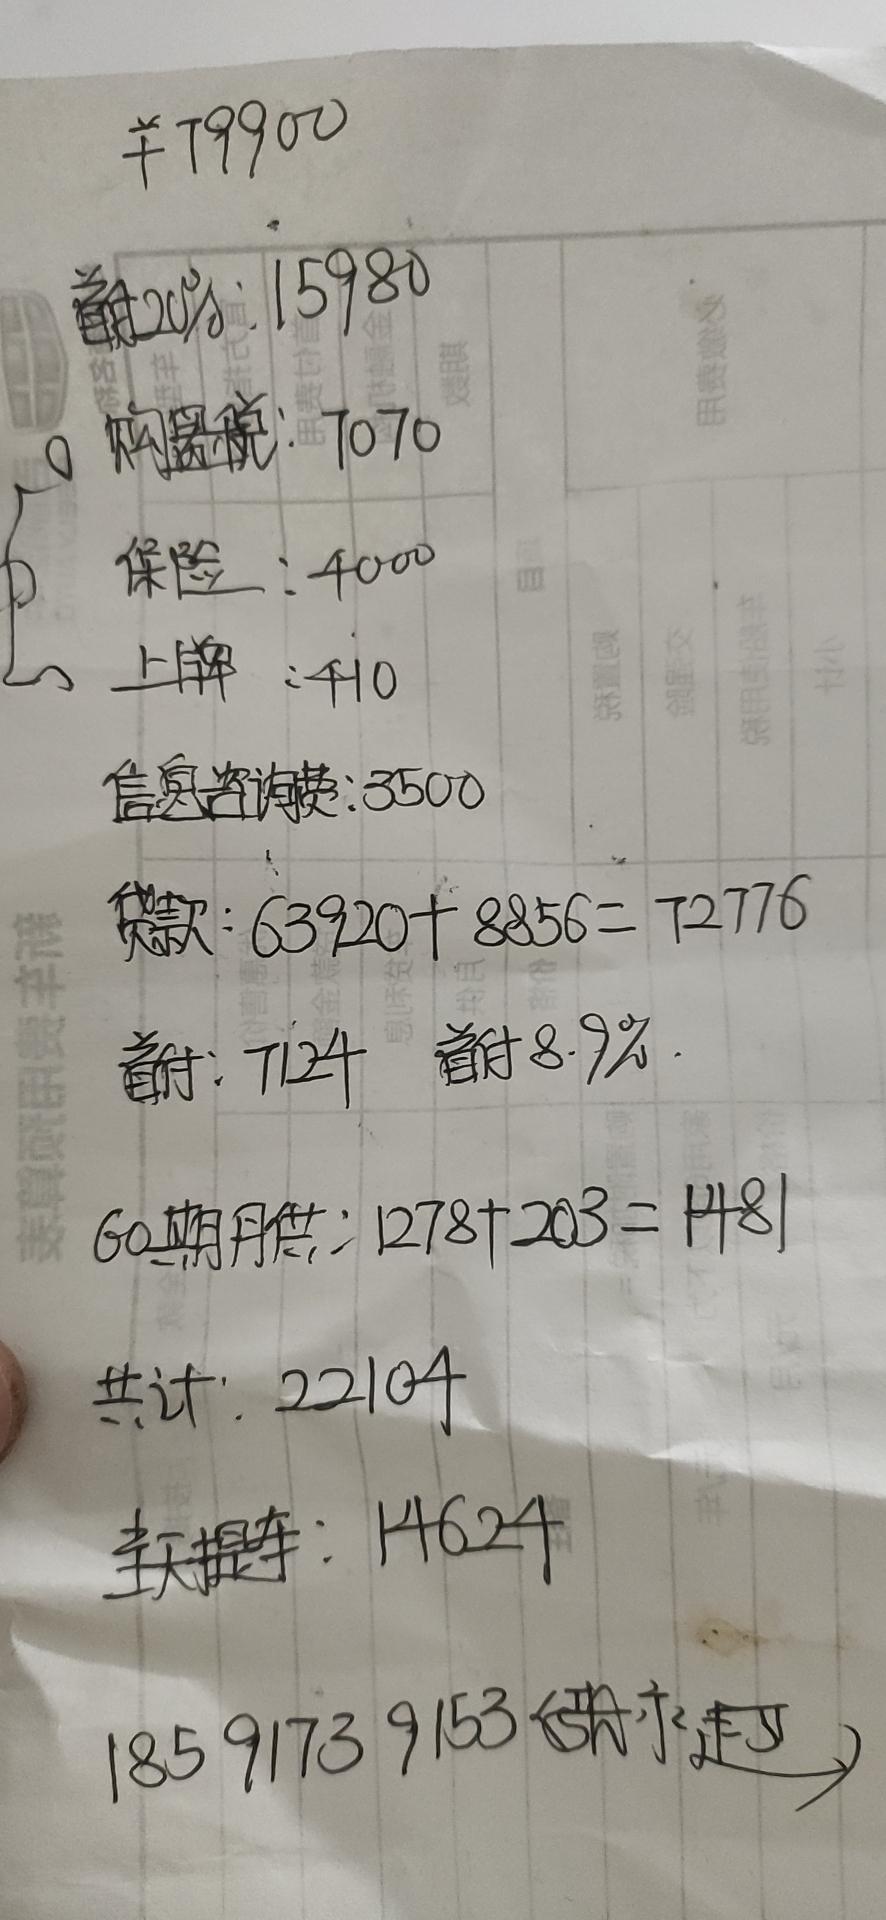 ¥79900
首付20%: 15980
购置税: 7070
保险: 4000
上牌: 410
信息咨询费: 3500
贷款: 63920+8856=72776
首付: 7124 首付8.9%.
60期月供: 1278+203=1481
共计: 22104
提车: 14624
185 9173 9153